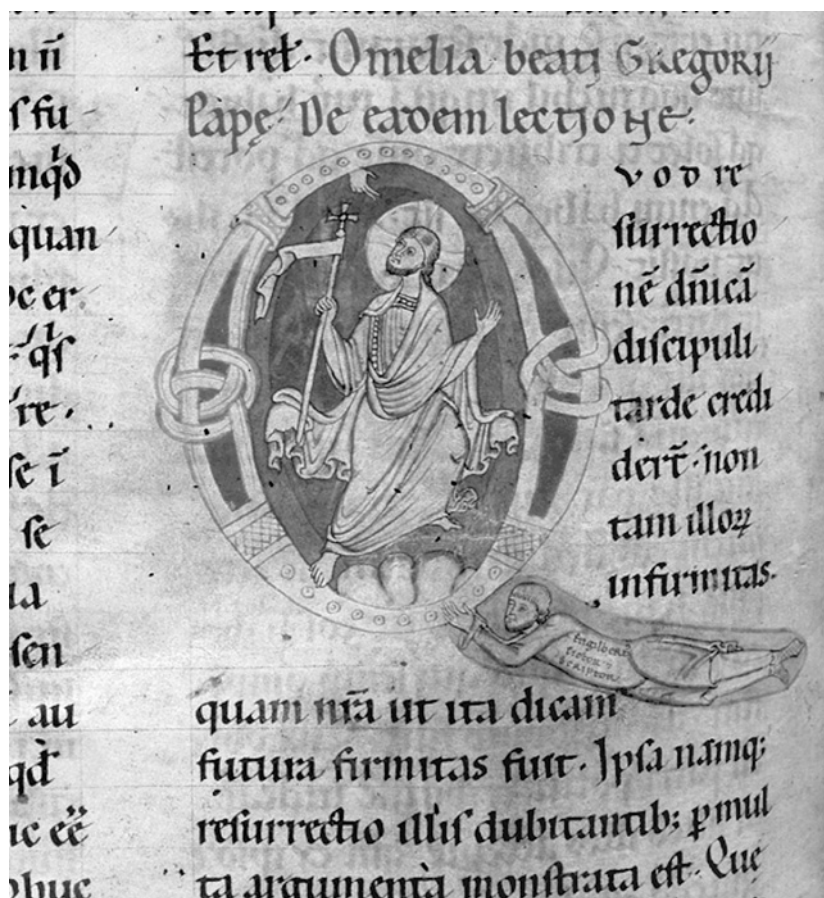 n n̄
ſ fu
mqđ
quan
oc er
qͥſ
re.
ſe ī
ſe
ia
ſen
au
qđ
ic eē
Et rel̃. Omelia beati Gregorij
Papę. De eadem lectione.
Q vod re
ſurrectio
nē dn̄icā
diſcipuli
tarde credi
derṫ. non
tam illoꝝ
infirmitas.
ſcriptor
quam nr̄a ut ita dicam
futura firmitas fuit. Ipſa namq;
reſurrectio illiſ dubitantib; ꝑ mul
ta argumenta monſtrata eſt. Que